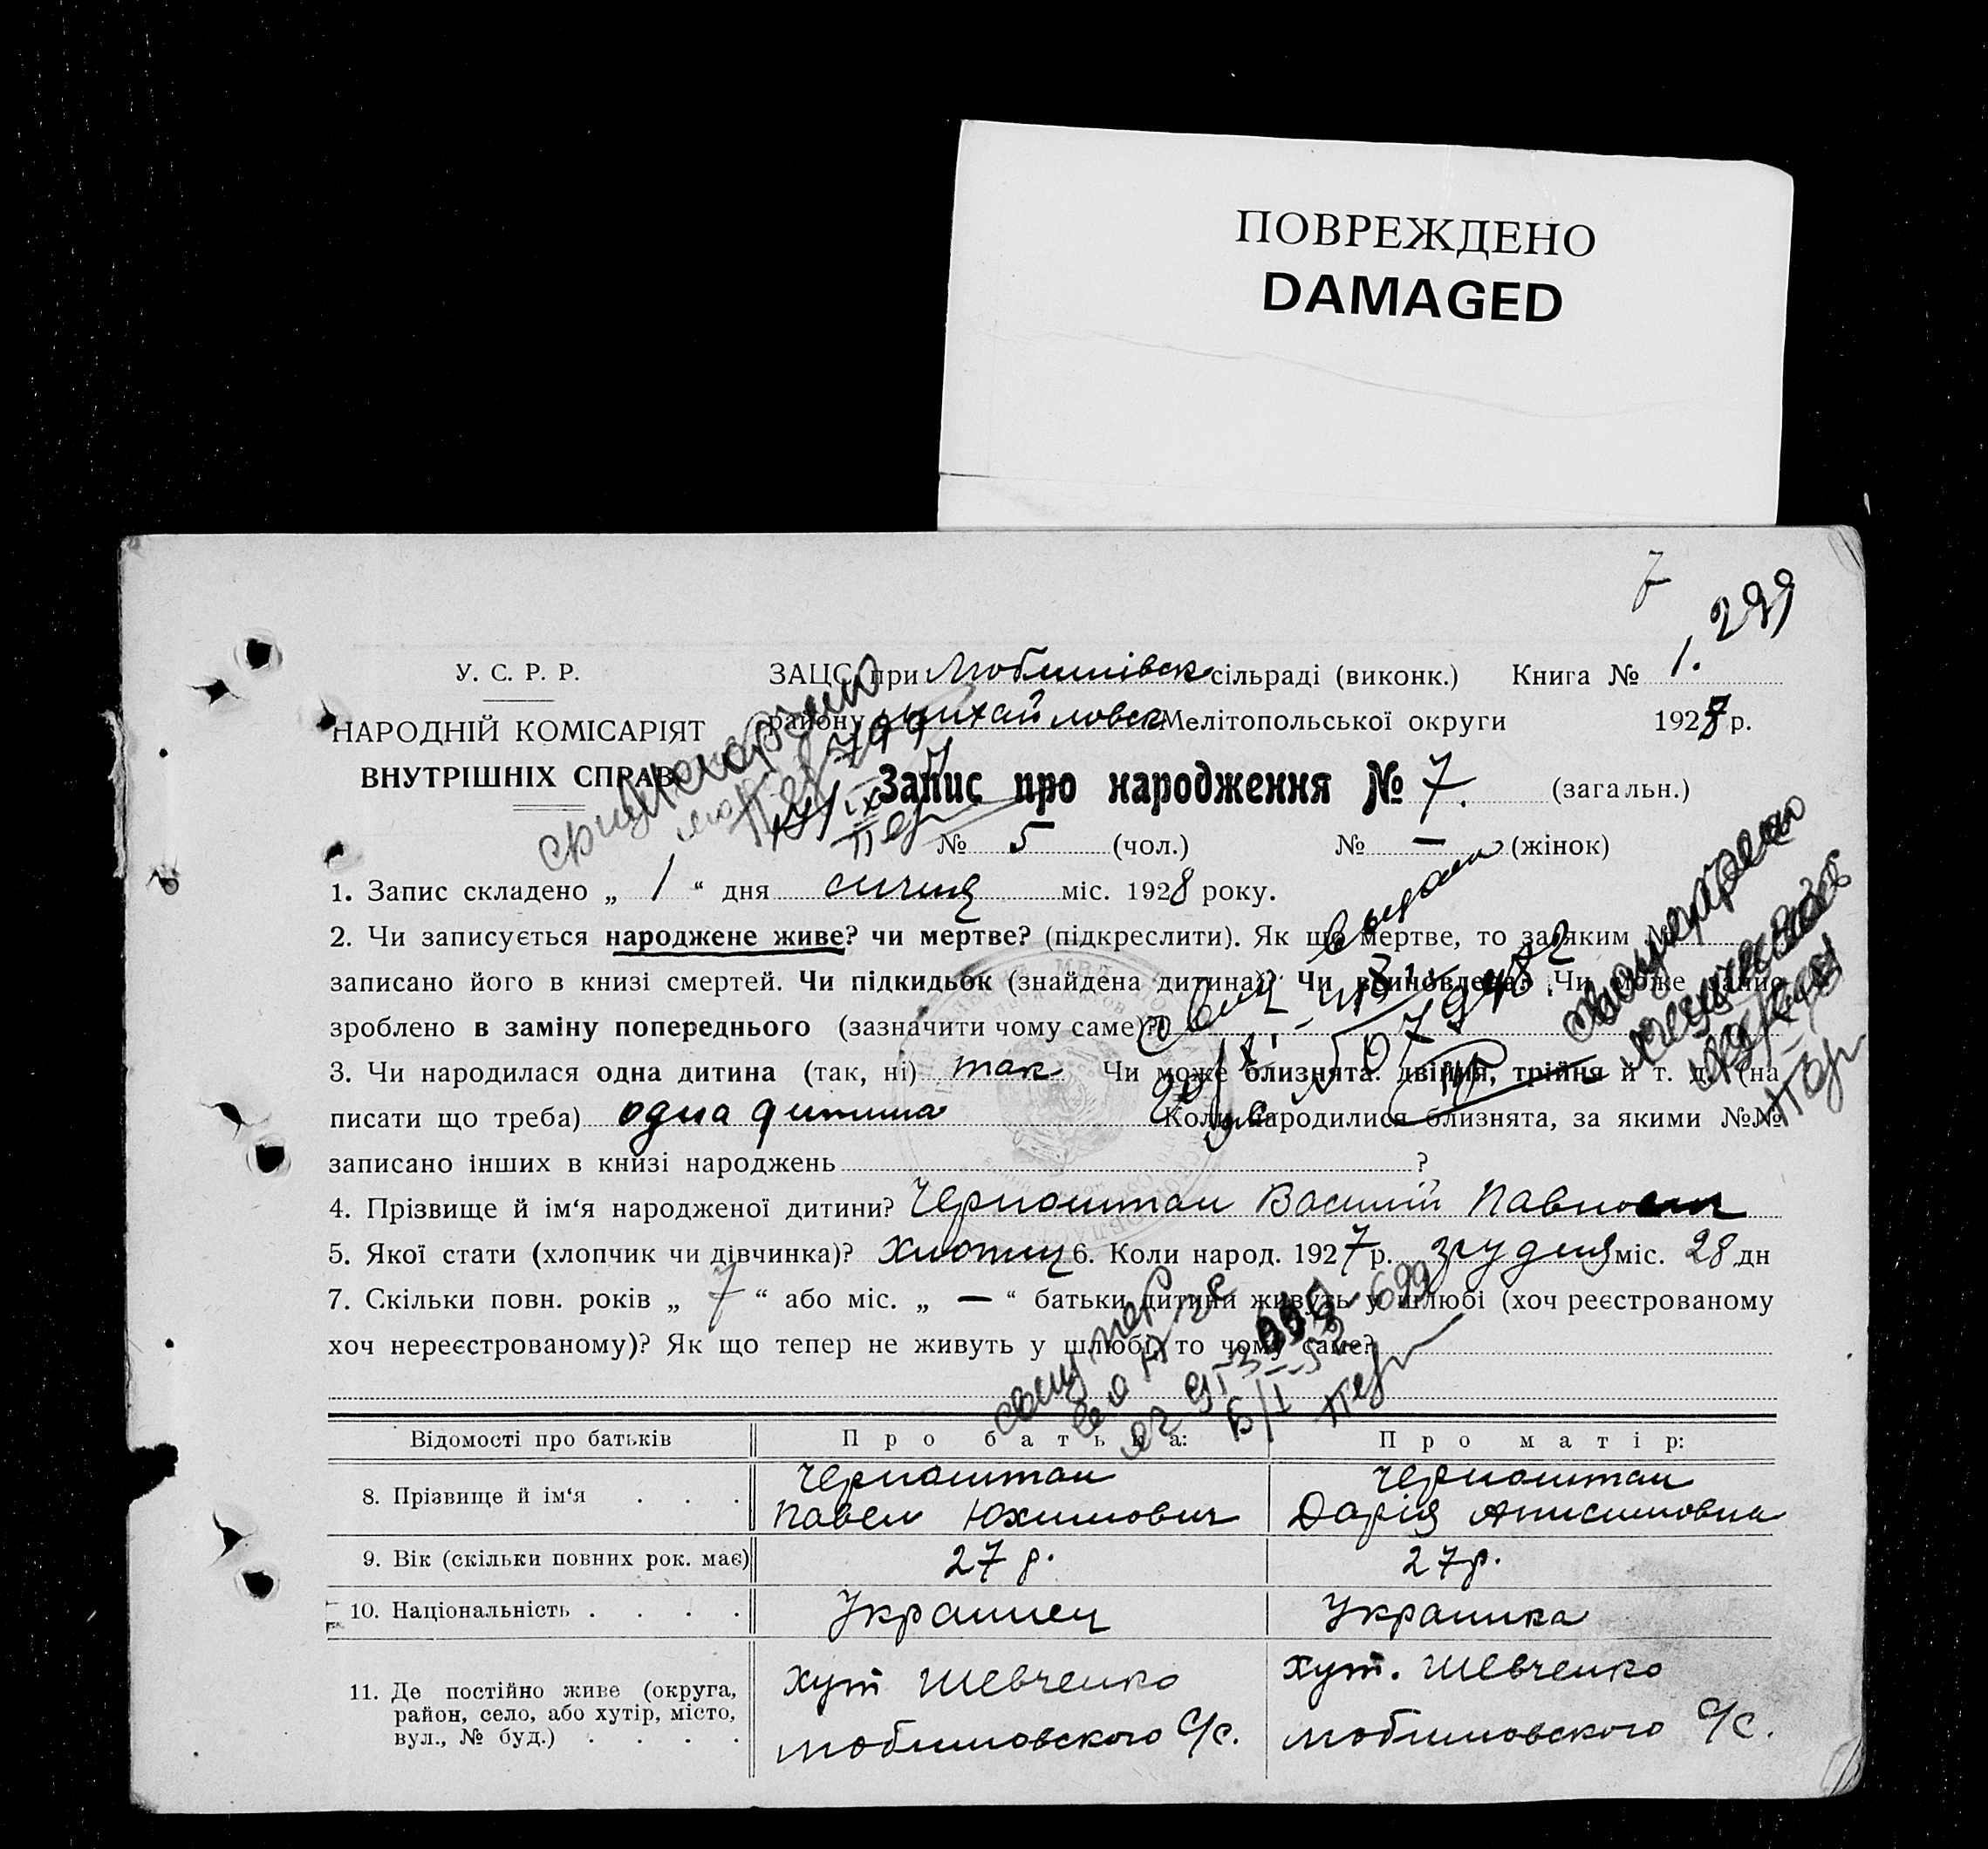 ПОВРЕЖДЕНО
DAMAGED
7
1. 299
У. С. Р. Р.
НАРОДНІЙ КОМІСАРІЯТ
ВНУТРІШНІХ СПРАВ
ЗАЦС при Любимівськ сільраді (виконк.) Книга №
району Михайловск Мелітопольської округи 1928 р.
Запис про народження № 7. (загальн.)
№ 5 (чол.) № — (жінок)
1. Запис складено „ 1 “ дня січня міс. 1928 року.
2. Чи записується народжене живе? чи мертве? (підкреслити). Як що мертве, то за яким №
записано його в книзі смертей. Чи підкидьок (знайдена дитина)? Чи вчиновлена? Чи може запис
зроблено в заміну попереднього (зазначити чому саме)?
3. Чи народилася одна дитина (так, ні) так Чи може близнята: двійня, трійня й т. д. (на
писати що треба) одна дитина Коли народилися близнята, за якими №№
записано інших в книзі народжень ?
4. Прізвище й ім‘я народженої дитини? Черноштан Василій Павлович
5. Якої стати (хлопчик чи дівчинка)? Хлопець 6. Коли народ. 1927 р. грудня міс. 28 дн
7. Скільки повн. років „ 7 “ або міс. „ — “ батьки дитини живуть у шлюбі (хоч реєстрованому
хоч нереєстрованому)? Як що тепер не живуть у шлюбі, то чому саме?
Відомості про батьків
Про батька:
Про матір:
8. Прізвище й ім‘я . . .
Черноштан
Павел Юхимович
Черноштан
Дарія Анисимовна
9. Вік (скільки повних рок. має)
27 р.
27 р.
10. Національність . . . .
Украинец
Украинка
11. Де постійно живе (округа,
район, село, або хутір, місто,
вул., № буд.) . . . .
Хут Шевченко
Любимовского С/с.
Хут. Шевченко
Любимовского С/с.